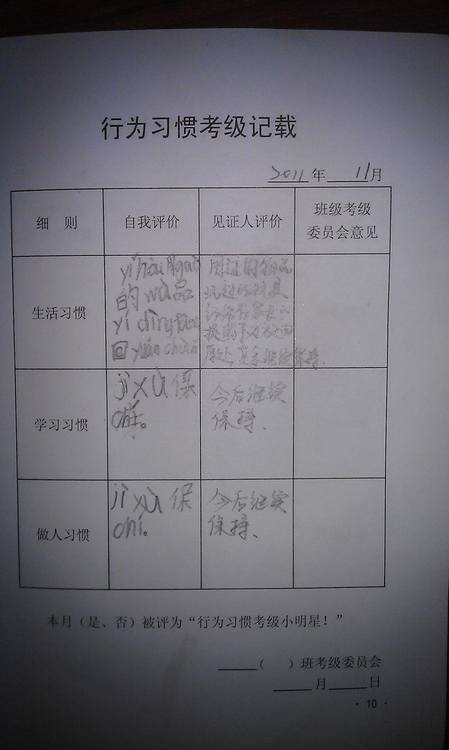 行为习惯考级记载
2011年 11月
细 则 自我评价 见证人评价 班级考级委员会意见
生活习惯
yǐhòu
的wù品
yí dìng
回yuán chù
用过的物品
玩过的玩具
原处
保持.
学习习惯
jì xù 保
chí。
今后继续
保持、
做人习惯
jì xù 保
chí。
今后继续
保持、
本月（是、否）被评为“行为习惯考级小明星！”
（ ）班考级委员会
月 日
· 10 ·